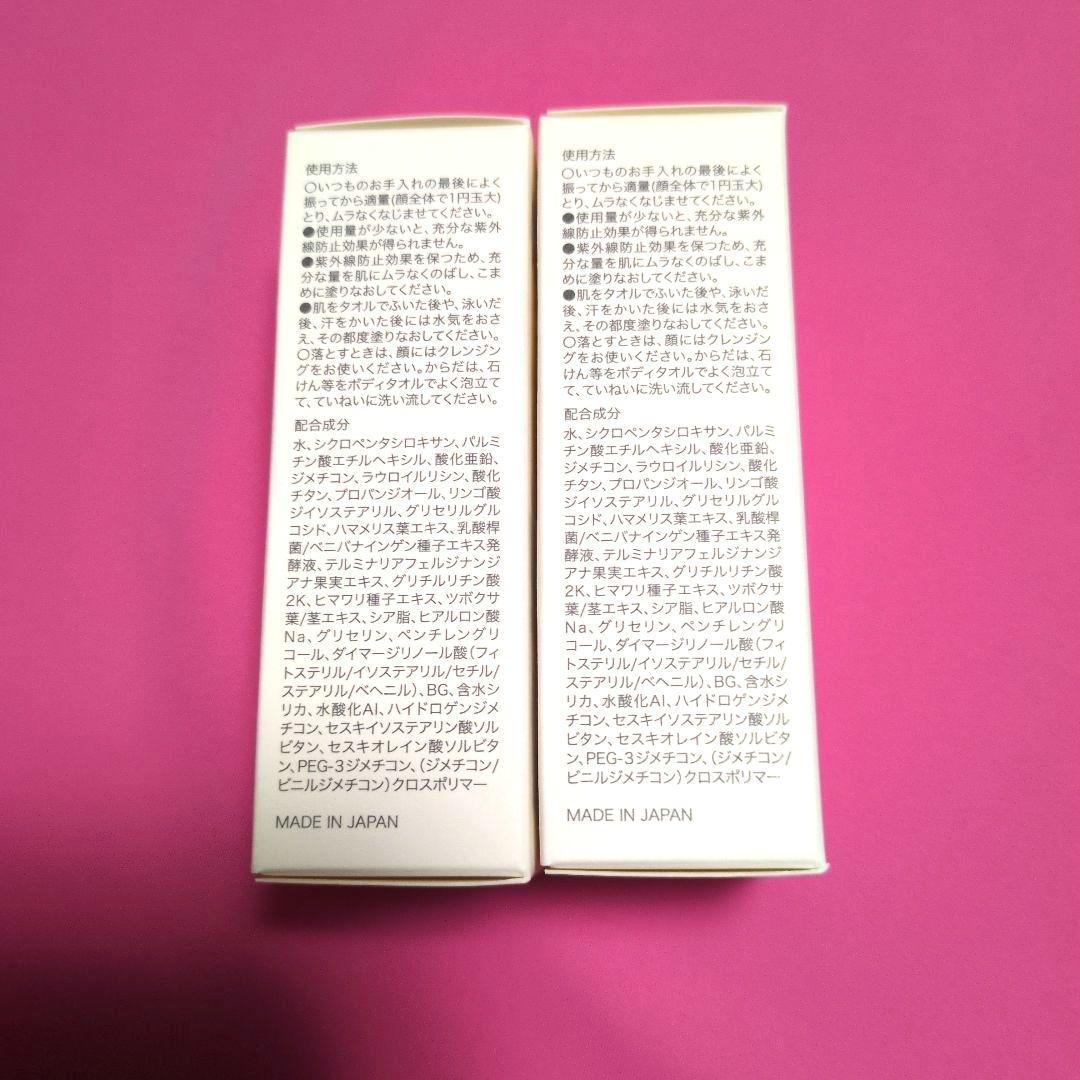 使用方法
○いつものお手入れの最後によく
振ってから適量(顔全体で1円玉大)
とり、ムラなくなじませてください。
●使用量が少ないと、充分な紫外
線防止効果が得られません。
●紫外線防止効果を保つため、充
分な量を肌にムラなくのばし、こま
めに塗りなおしてください。
●肌をタオルでふいた後や、泳いだ
後、汗をかいた後には水気をおさ
え、その都度塗りなおしてください。
○落とすときは、顔にはクレンジン
グをお使いください。からだは、石
けん等をボディタオルでよく泡立て
て、ていねいに洗い流してください。
配合成分
水、シクロペンタシロキサン、パルミ
チン酸エチルヘキシル、酸化亜鉛、
ジメチコン、ラウロイルリシン、酸化
チタン、プロパンジオール、リンゴ酸
ジイソステアリル、グリセリルグル
コシド、ハマメリス葉エキス、乳酸桿
菌/ベニバナインゲン種子エキス発
酵液、テルミナリアフェルジナンジ
アナ果実エキス、グリチルリチン酸
2K、ヒマワリ種子エキス、ツボクサ
葉/茎エキス、シア脂、ヒアルロン酸
Na、グリセリン、ペンチレングリ
コール、ダイマージリノール酸(フィ
トステリル/イソステアリル/セチル/
ステアリル/ベヘニル)、BG、含水シ
リカ、水酸化Al、ハイドロゲンジメ
チコン、セスキイソステアリン酸ソル
ビタン、セスキオレイン酸ソルビタ
ン、PEG-3ジメチコン、(ジメチコン/
ビニルジメチコン)クロスポリマー
MADE IN JAPAN
使用方法
○いつものお手入れの最後によく
振ってから適量(顔全体で1円玉大)
とり、ムラなくなじませてください。
●使用量が少ないと、充分な紫外
線防止効果が得られません。
●紫外線防止効果を保つため、充
分な量を肌にムラなくのばし、こま
めに塗りなおしてください。
●肌をタオルでふいた後や、泳いだ
後、汗をかいた後には水気をおさ
え、その都度塗りなおしてください。
○落とすときは、顔にはクレンジン
グをお使いください。からだは、石
けん等をボディタオルでよく泡立て
て、ていねいに洗い流してください。
配合成分
水、シクロペンタシロキサン、パルミ
チン酸エチルヘキシル、酸化亜鉛、
ジメチコン、ラウロイルリシン、酸化
チタン、プロパンジオール、リンゴ酸
ジイソステアリル、グリセリルグル
コシド、ハマメリス葉エキス、乳酸桿
菌/ベニバナインゲン種子エキス発
酵液、テルミナリアフェルジナンジ
アナ果実エキス、グリチルリチン酸
2K、ヒマワリ種子エキス、ツボクサ
葉/茎エキス、シア脂、ヒアルロン酸
Na、グリセリン、ペンチレングリ
コール、ダイマージリノール酸(フィ
トステリル/イソステアリル/セチル/
ステアリル/ベヘニル)、BG、含水シ
リカ、水酸化Al、ハイドロゲンジメ
チコン、セスキイソステアリン酸ソル
ビタン、セスキオレイン酸ソルビタ
ン、PEG-3ジメチコン、(ジメチコン/
ビニルジメチコン)クロスポリマー
MADE IN JAPAN